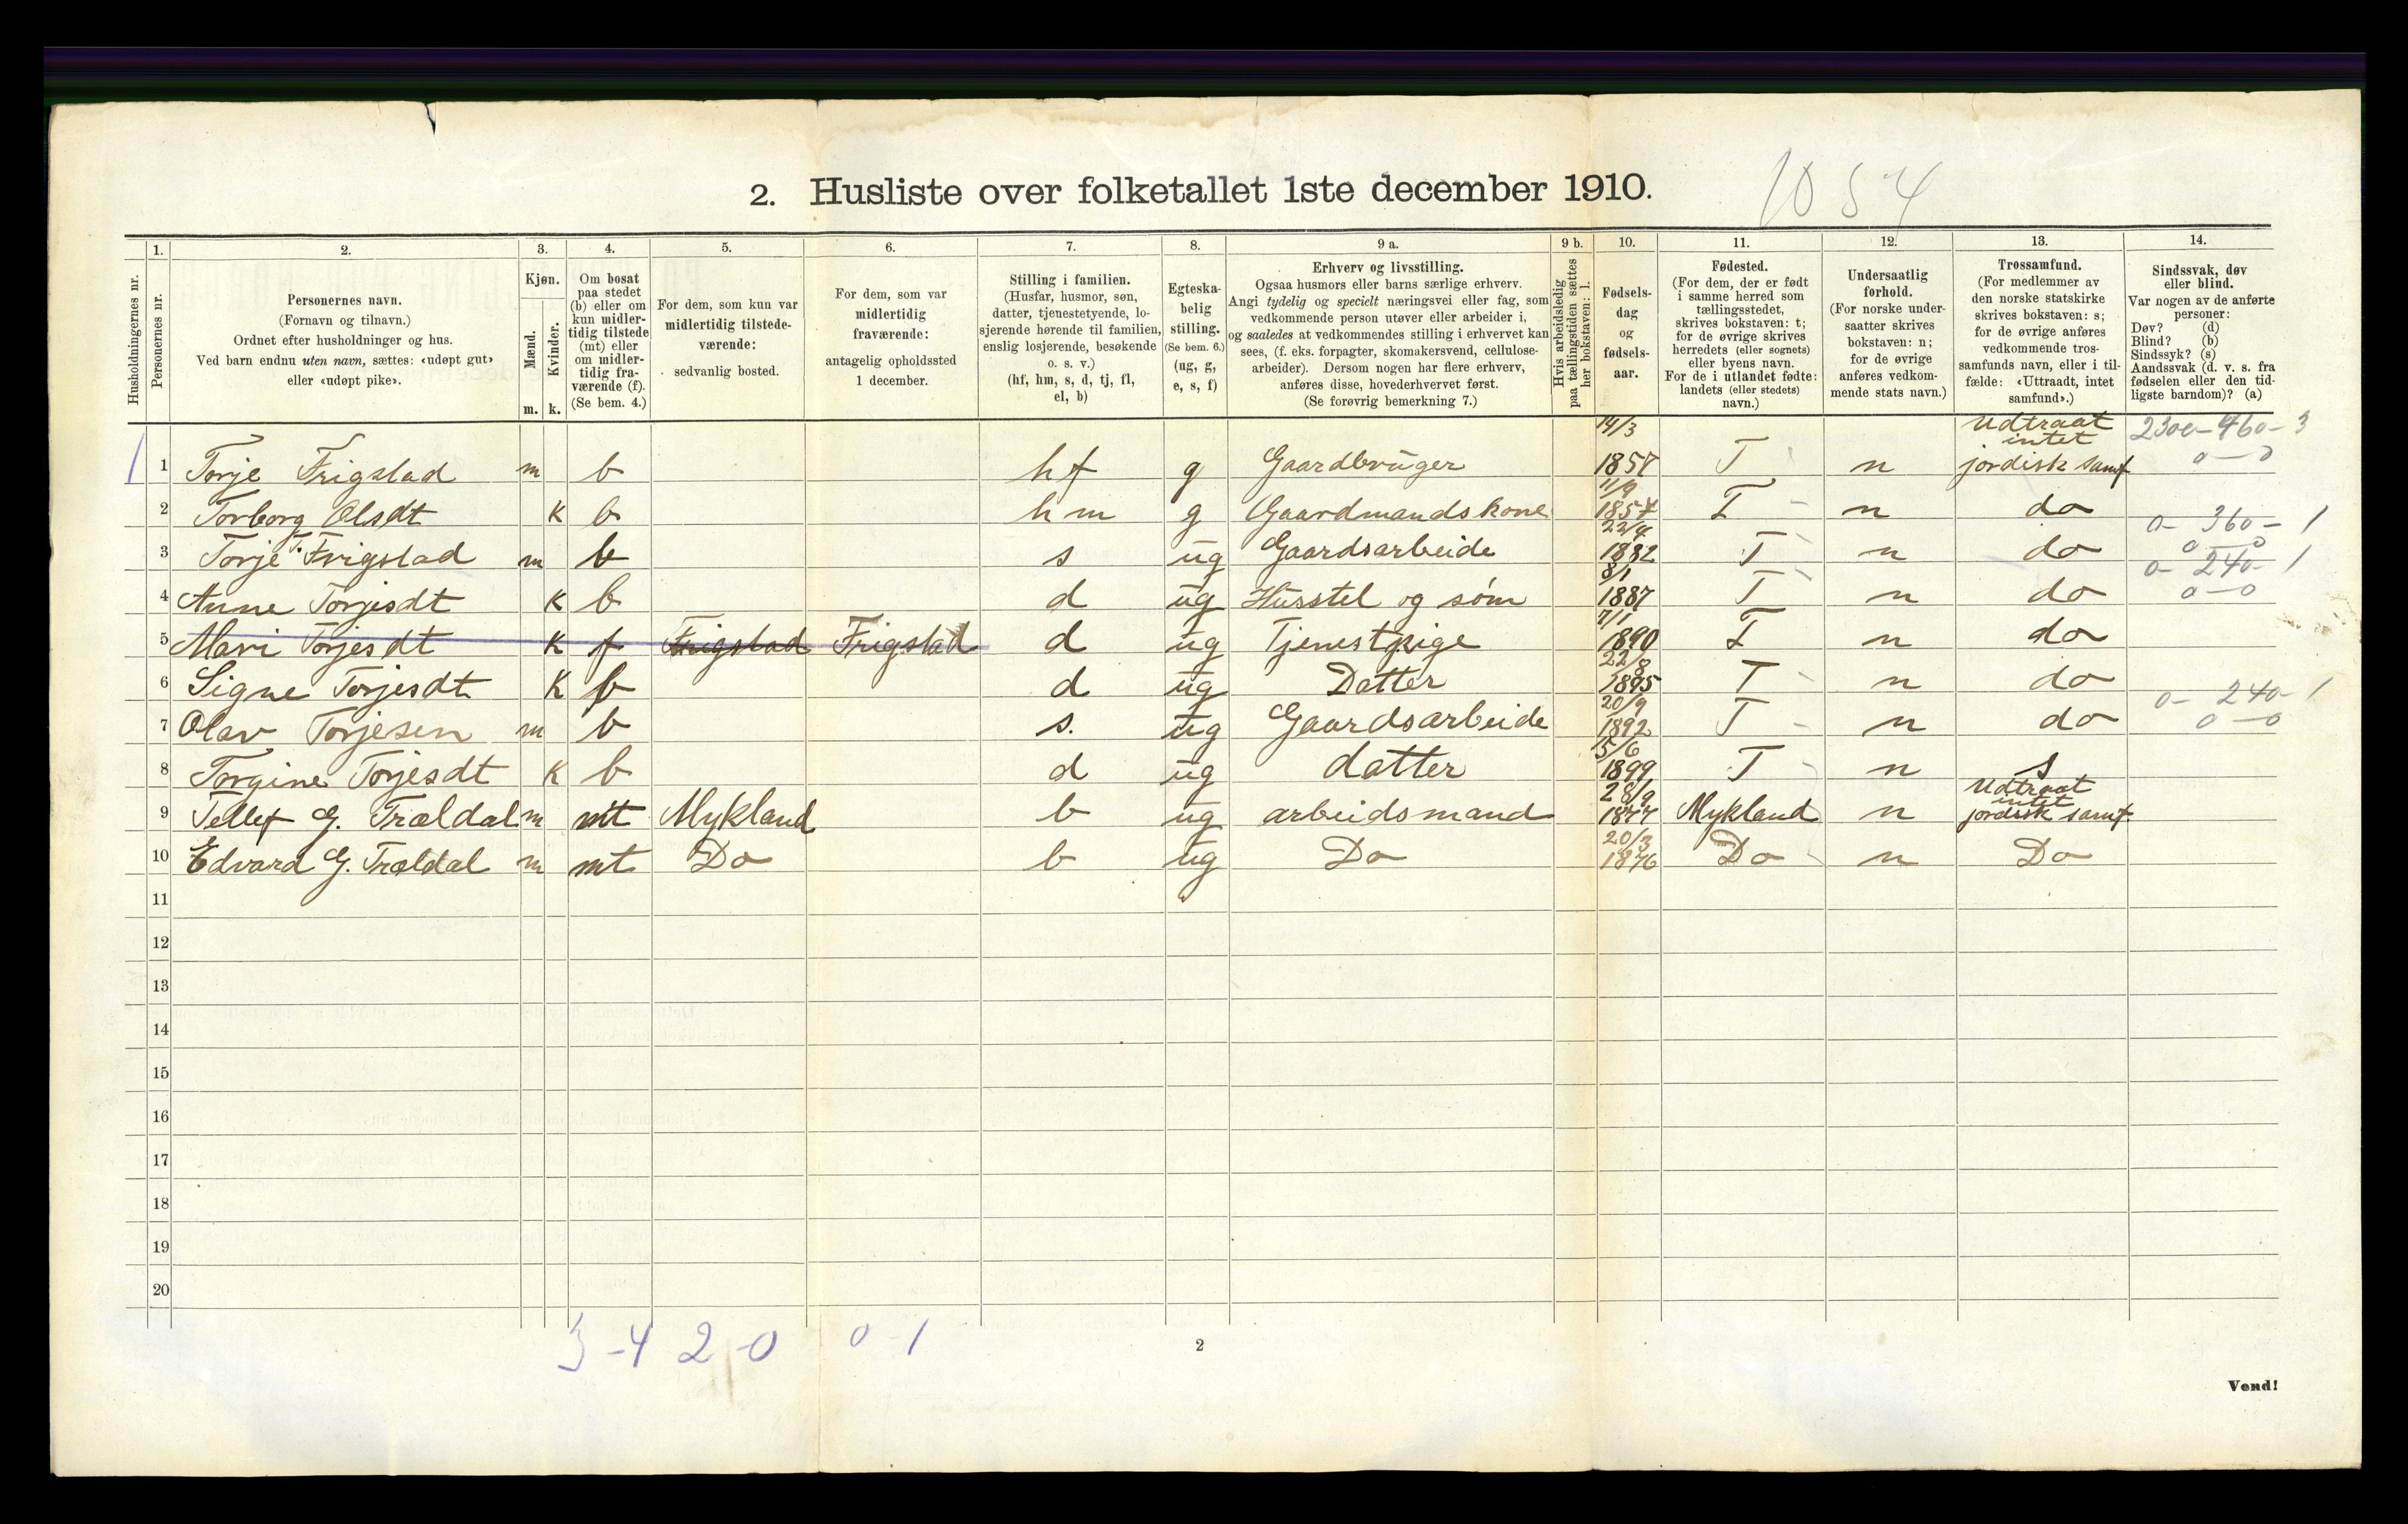 2. Husliste over folketallet 1ste december 1910.
1054
Husholdningernes nr.
1.
Personernes nr.
2.
Personernes navn.
(Fornavn og tilnavn.)
Ordnet efter husholdninger og hus.
Ved barn endnu uten navn, sættes: «udøpt gut»
eller «udøpt pike».
3.
Kjøn.
Mænd.
Kvinder.
m. k.
4.
Om bosat
paa stedet
(b) eller om
kun midler-
tidig tilstede
(mt) eller
om midler-
tidig fra-
værende (f).
(Se bem. 4.)
5.
For dem, som kun var
midlertidig tilstede-
værende:
sedvanlig bosted.
6.
For dem, som var
midlertidig
fraværende:
antagelig opholdssted
1 december.
7.
Stilling i familien.
(Husfar, husmor, søn,
datter, tjenestetyende, lo-
sjerende hørende til familien,
enslig losjerende, besøkende
o. s. v.)
(hf, hm, s, d, tj, fl,
el, b)
8.
Egteska-
belig
stilling.
(Se bem. 6.)
(ug, g,
e, s, f)
9 a.
Erhverv og livsstilling.
Ogsaa husmors eller barns særlige erhverv.
Angi tydelig og specielt næringsvei eller fag, som
vedkommende person utøver eller arbeider i,
og saaledes at vedkommendes stilling i erhvervet kan
sees, (f. eks. forpagter, skomakersvend, cellulose-
arbeider). Dersom nogen har flere erhverv,
anføres disse, hovederhvervet først.
(Se forøvrig bemerkning 7.)
9 b.
Hvis arbeidsledig
paa tællingstiden sættes
her bokstaven: l.
10.
Fødsels-
dag
og
fødsels-
aar.
11.
Fødested.
(For dem, der er født
i samme herred som
tællingsstedet,
skrives bokstaven: t;
for de øvrige skrives
herredets (eller sognets)
eller byens navn.
For de i utlandet fødte:
landets (eller stedets)
navn.)
12.
Undersaatlig
forhold.
(For norske under-
saatter skrives
bokstaven: n;
for de øvrige
anføres vedkom-
mende stats navn.)
13.
Trossamfund.
(For medlemmer av
den norske statskirke
skrives bokstaven: s;
for de øvrige anføres
vedkommende tros-
samfunds navn, eller i til-
fælde: «Uttraadt, intet
samfund».)
14.
Sindssvak, døv
eller blind.
Var nogen av de anførte
personer:
Døv? (d)
Blind? (b)
Sindssyk? (s)
Aandssvak (d. v. s. fra
fødselen eller den tid-
ligste barndom)? (a)
1 1 Torje Frigstad m b hf g Gaardbrüger 14/3 1857 T n Udtraat intet jordisk samf 2300-460-3 0-0
2 Torborg Olsdt K b hm g Gaardmandskone 11/9 1857 T n do
3 Torje T. Frigstad m b s ug Gaardsarbeide 22/4 1882 T n do 0-360-1 0-0
4 Anne Torjesdt K b d ug Husstel og søm 8/1 1887 T n do 0-240-1 0-0
5 Mari Torjesdt K f Frigstad Frigstad d ug Tjenestpige 7/1 1890 T n do
6 Signe Torjesdt K b d ug Datter 22/8 1895 T n do
7 Olav Torjesen m b s. ug Gaardsarbeide 20/9 1892 T n do 0-240-1 0-0
8 Torgine Torjesdt K b d ug datter 15/6 1899 T n s
9 Tellef G. Trældal m mt Mykland b ug arbeidsmand 28/9 1877 Mykland n Udtraat intet jordisk samf
10 Edvard G. Trældal m mt Do b ug Do 20/3 1876 Do n Do
11
12
13
14
15
16
17
18
19
20
3-4 2-0 0-1
2
Vend!